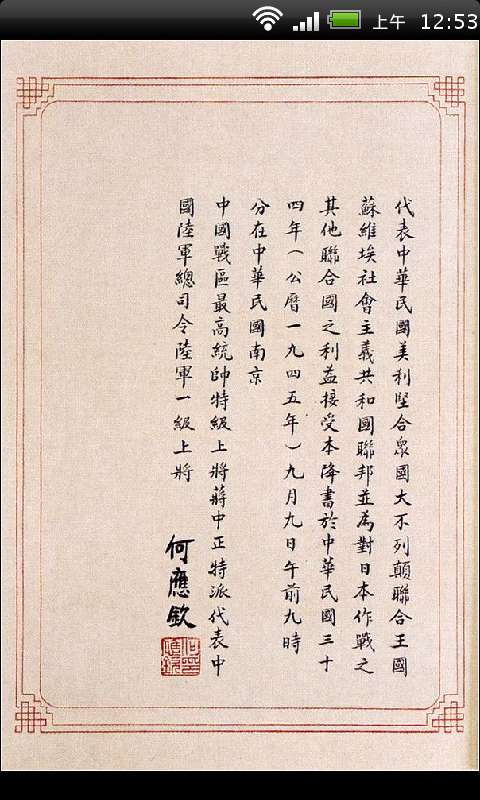 上午 12:53
代表中華民國美利堅合眾國大不列顛聯合王國
蘇維埃社會主義共和國聯邦並為對日本作戰之
其他聯合國之利益接受本降書於中華民國三十
四年（公曆一九四五年）九月九日午前九時
分在中華民國南京
中國戰區最高統帥特級上將蔣中正特派代表中
國陸軍總司令陸軍一級上將
何應欽
何應欽印